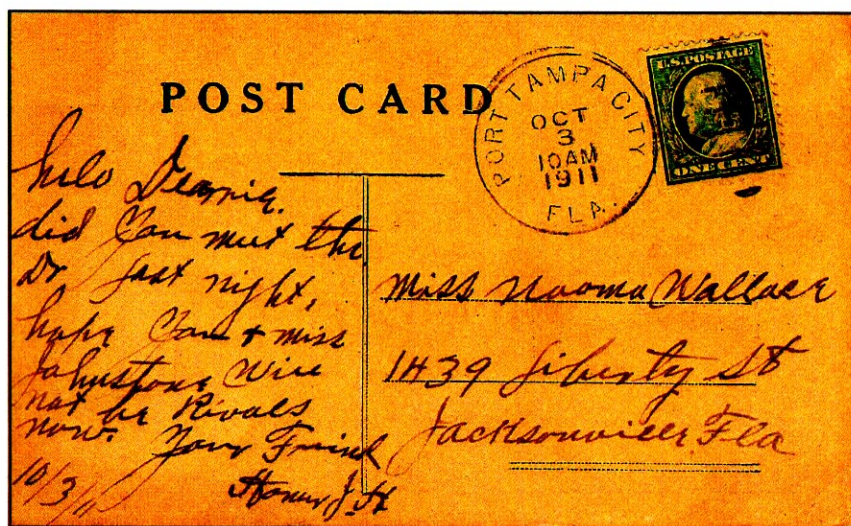 POST CARD
PORT TAMPA CITY
OCT
3
10AM
1911
FLA.
U.S. POSTAGE
ONE CENT
helo Dearie.
did You meet the
Dr last night,
hope You + miss
Johnstone Will
not be Rivals
now. Your Friend
10/3/11
Miss Naoma Wallace
1439 Liberty St
Jacksonville Fla